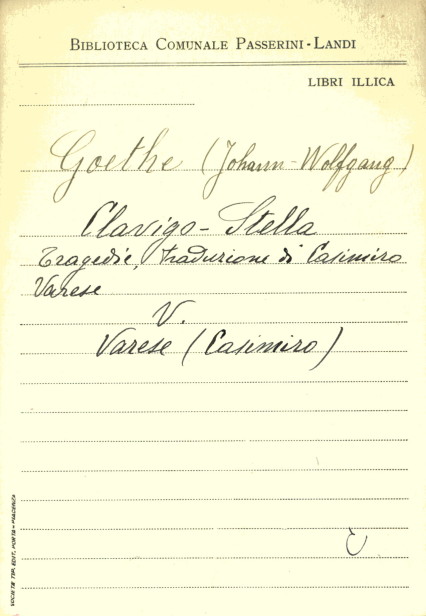 BIBLIOTECA COMUNALE PASSERINI-LANDI
LIBRI ILLICA
Goethe (Johann-Wolfgang)
Clavigo-Stella
Tragedie, traduzione di Casimiro
Varese
V.
Varese (Casimiro)